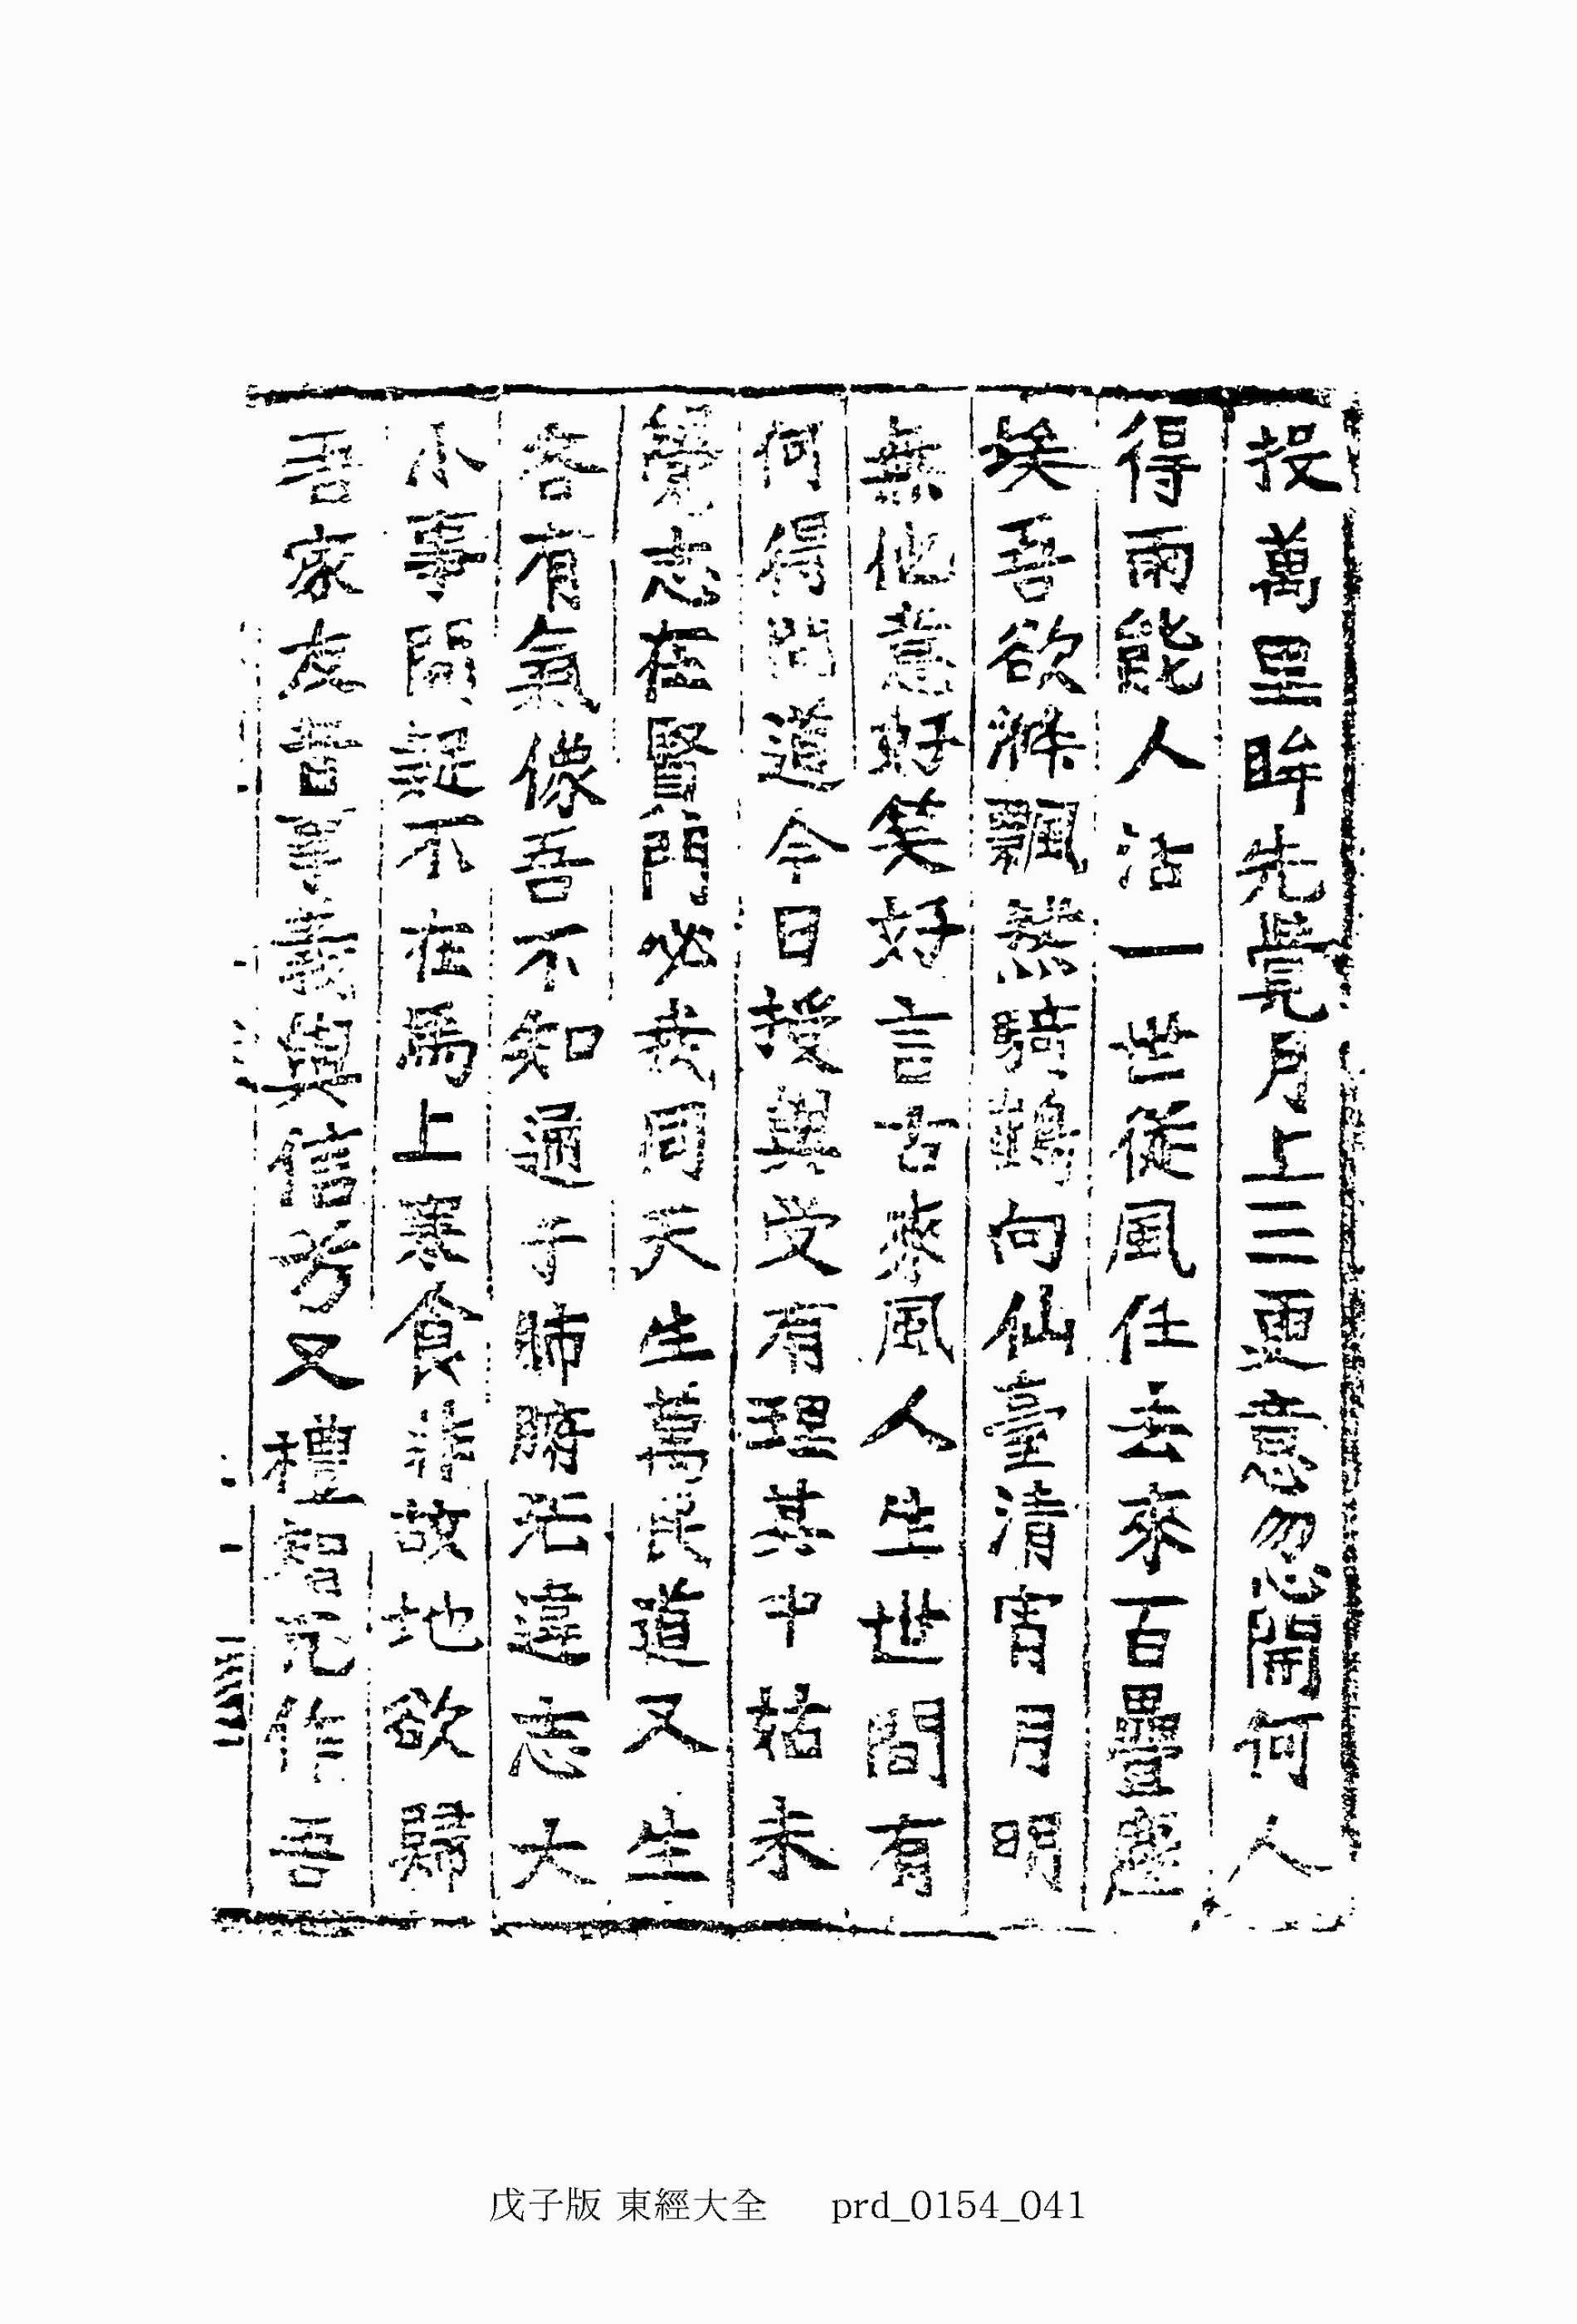 投萬里眸先覺月上三更意忽開何人
得雨能人活一世從風任去來百疊塵
埃吾欲滌飄然騎鶴向仙臺淸宵月明
無他意好笑好言古來風人生世間有
何得問道今日授與受有理其中姑未
覺志在賢門必我同天生萬民道又生
各有氣像吾不知通于肺腑无違志大
小事間疑不在爲上寒食非故地欲歸
吾家友昔事義與信兮又禮智凡作吾
戊子版 東經大全 prd_0154_041